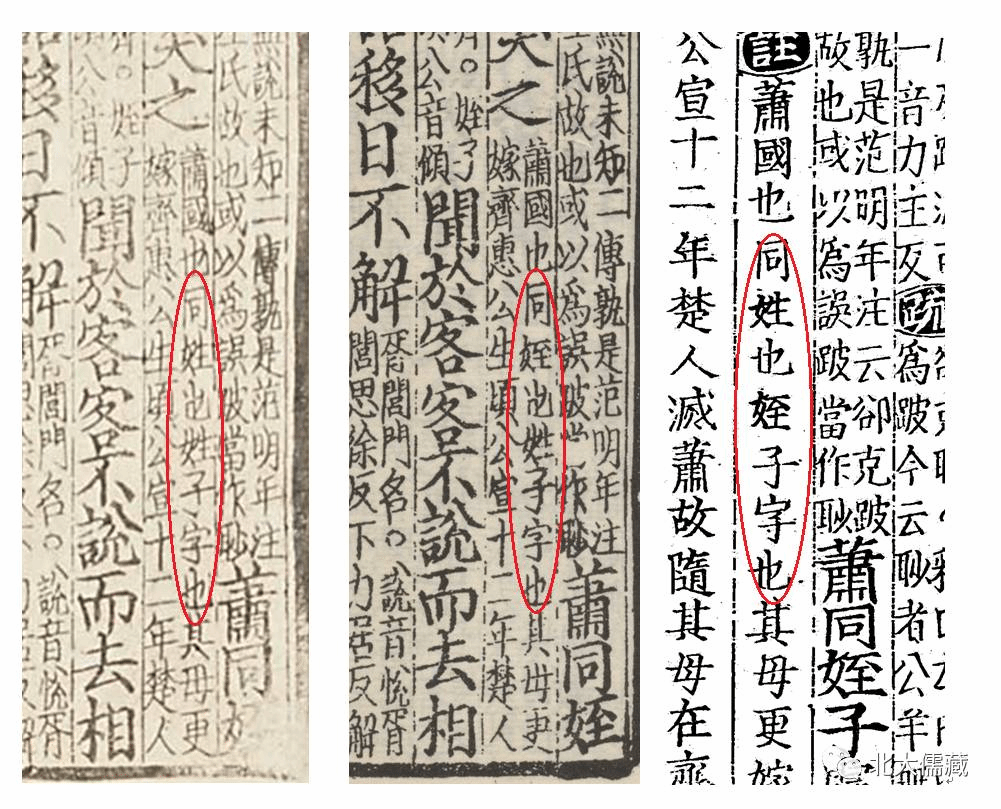 無說未知二傳孰是范明年注
氏故也或以爲誤跛當作眇
蕭同
之
蕭國也同姓也姓子字也其母更
嫁齊惠公生頃公宣十二年楚人
姪子
公音傾
聞於客客不說而去相
移日不解
胥閭門名。說音悅胥
無說未知二傳孰是范明年注
氏故也或以爲誤跛作眇
蕭同姪
之
蕭國也同姪也姓子字也其母更
嫁齊惠公生頃公宣十二年楚人
姪子
公音傾
聞於客客不說而去相
移日不解
胥閭門名。說音悅胥
閭思徐反下力居反解
一音力主反疏
爲跛今云眇者公羊
孰是范明年注云郤克跛
故也或以爲誤跛當作眇
蕭同姪子
註蕭國也同姓也姪子字也其母更嫁
公宣十二年楚人滅蕭故隨其母在齊
北大儒藏